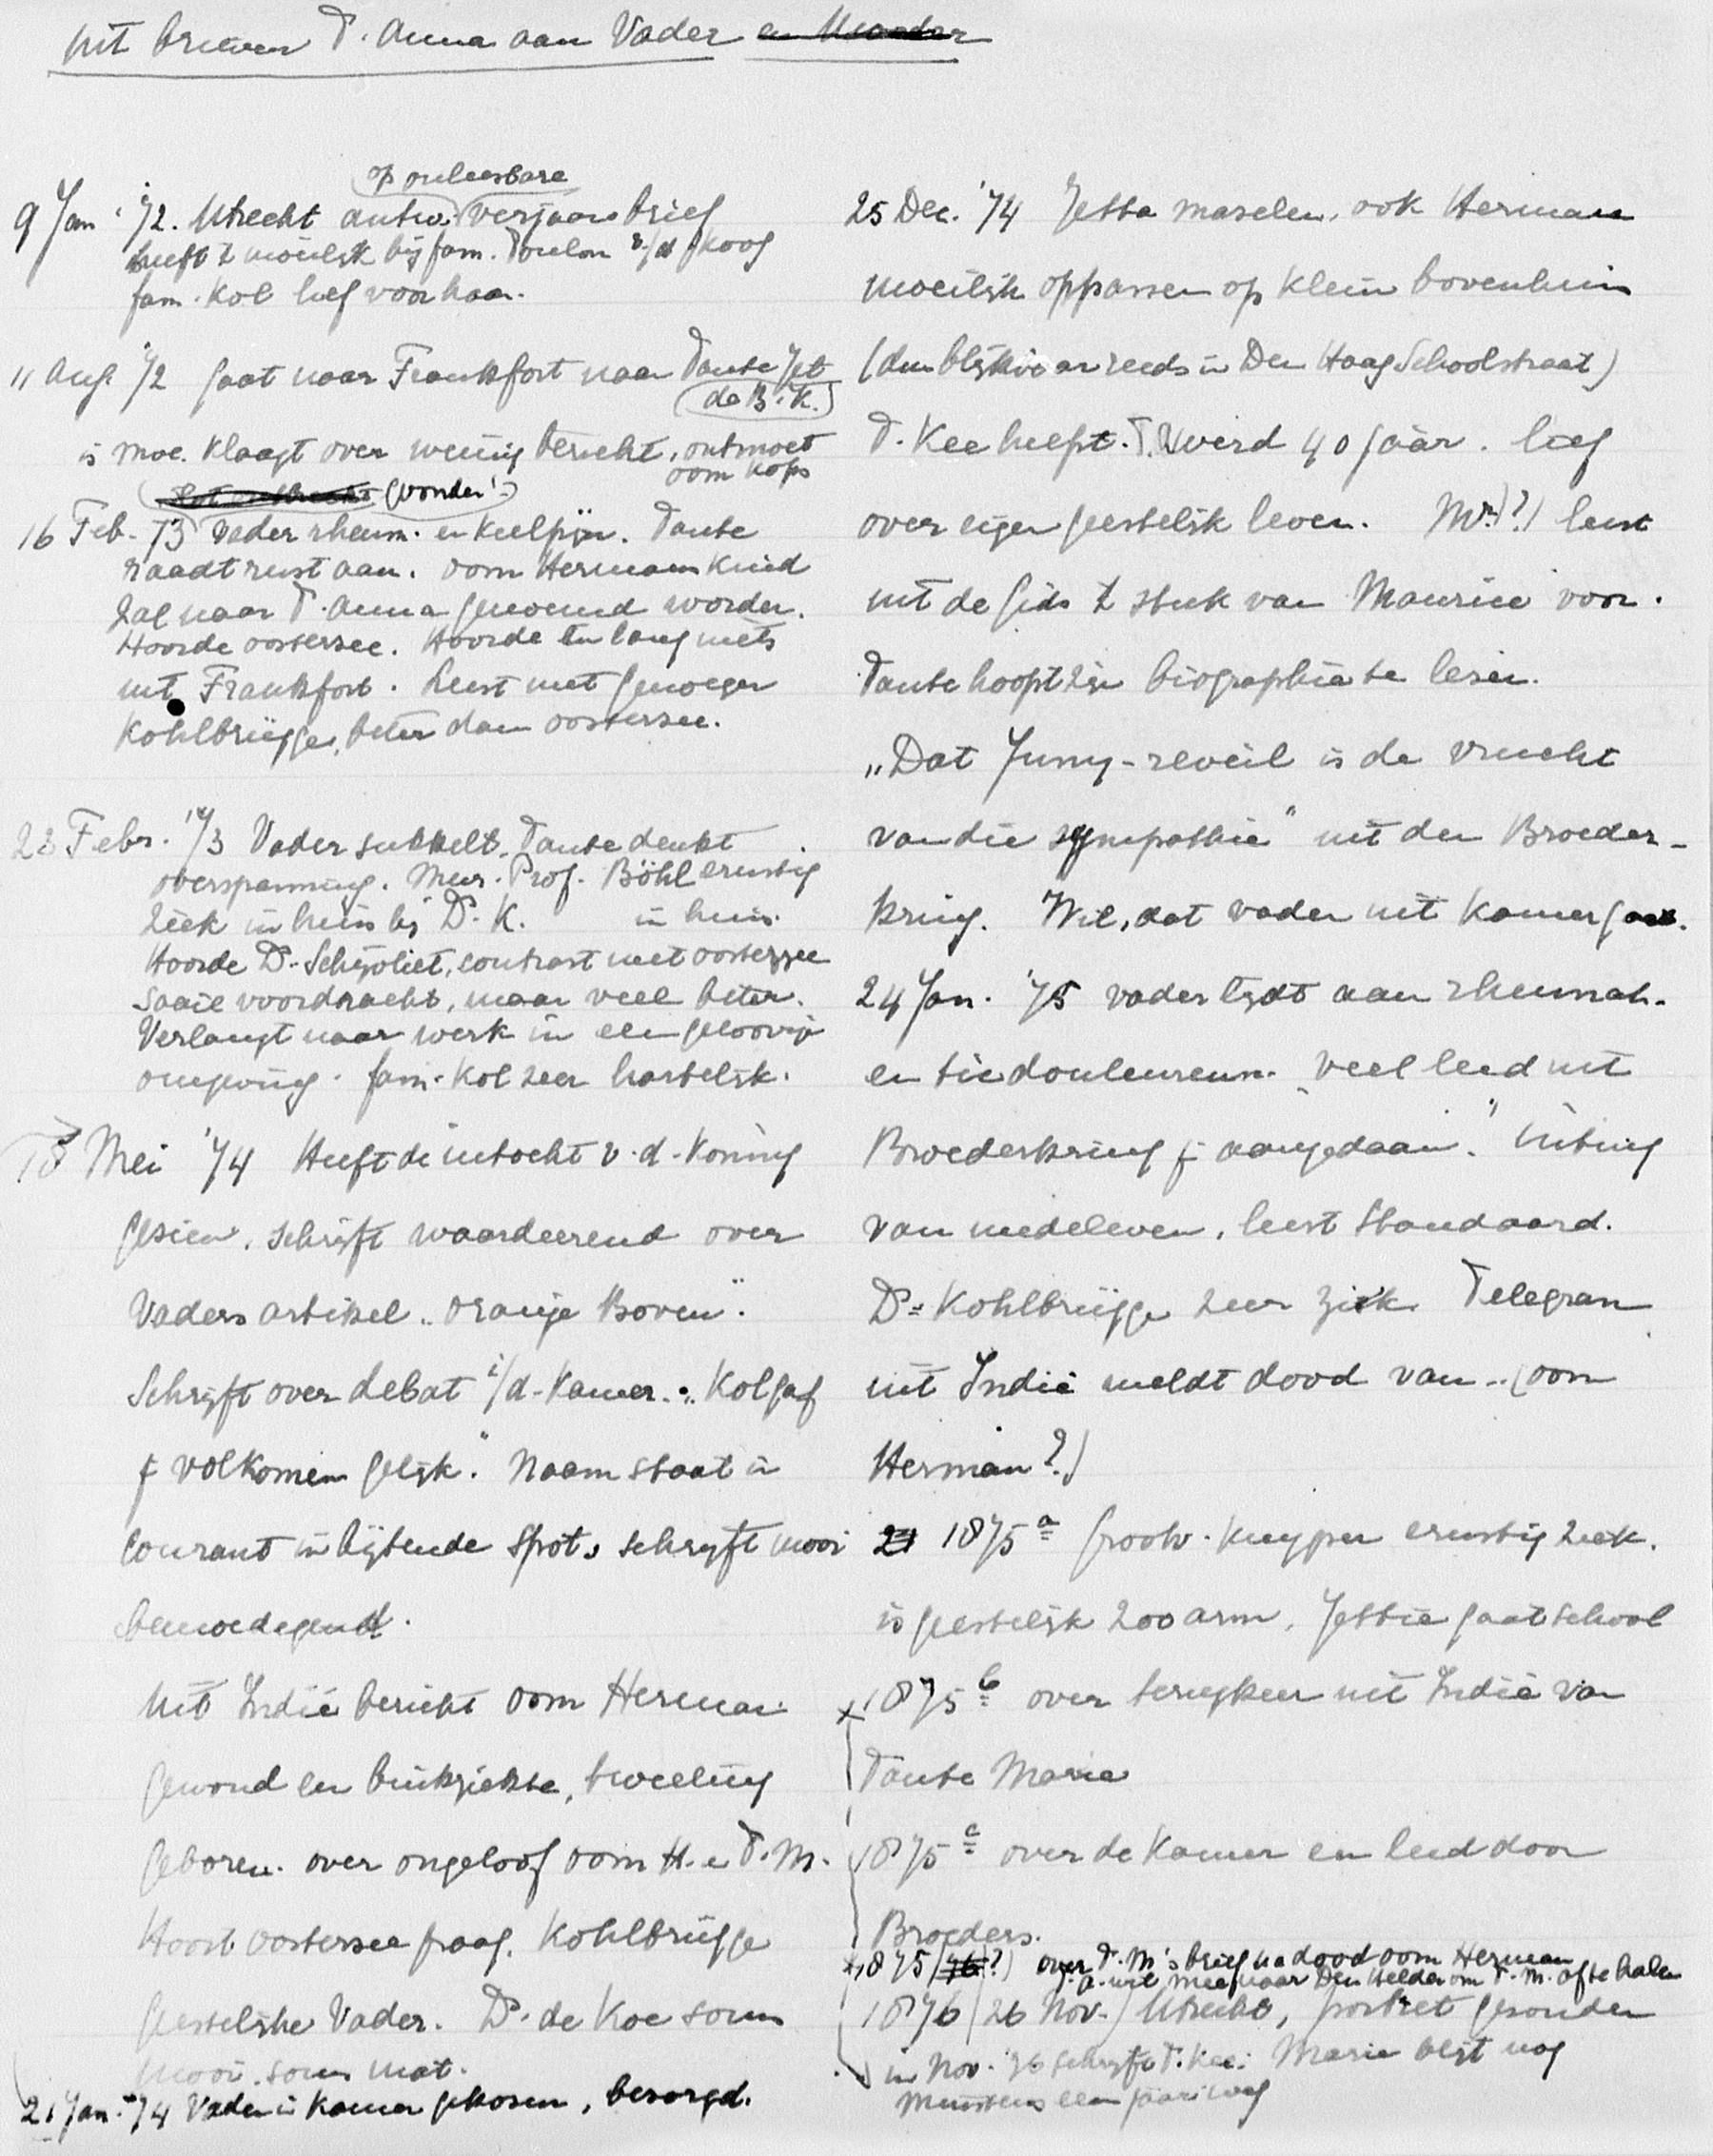 Uit brieven T. Anna aan Vader en Moeder
op onleesbare
9 Jan '72. Utrecht antw. verjaarsbrief
heeft 't moeilijk bij fam. Toulon v/d Koog
fam. Kol lief voor haar.
11 Aug. '72 gaat naar Frankfort naar Tante Jet
de B. K.
is moe. Klaagt over weinig bericht, ontmoet
oom Kops
(vonder!)
16 Feb. '73 Vader rheum. en keelpijn. Tante
raadt rust aan. Oom Hermans kind
zal naar T. Anna genoemd worden.
Hoorde Oosterzee. Hoorde in lang niets
uit Frankfort. Leest met genoegen
Kohlbrügge, beter dan Oosterzee.
23 Febr. '73 Vader sukkelt. Tante denkt
overspanning. Mevr. Prof. Böhl ernstig
ziek in huis bij Ds. K. in huis.
Hoorde Ds. Schijvliet, contrast met Oosterzee
Saaie voordracht, maar veel beter.
Verlangt naar werk in een geloovige
omgeving. fam. Kol zeer hartelijk.
18 Mei '74 Heeft de intocht v. d. Koning
gezien. Schrijft waardeerend over
Vaders artikel "Oranje Boven".
Schrijft over debat i/d Kamer. "Kol gaf
j volkomen gelijk." Naam staat in
Courant in bijtende spot. Schrijft mooi
bemoedigend.
Uit Indië bericht oom Herman
gewond en buikziekte, tweeling
geboren. over ongeloof oom H. en T. M.
Hoort Oosterzee graag. Kohlbrügge
geestelijke Vader. Ds. de Koe soms
mooi, soms mat.
21 Jan. '74 Vader in Kamer gekozen, bezorgd.
25 Dec. '74 Jetta mazelen, ook Herman
moeilijk oppassen op klein bovenhuis
(dus blijkbaar reeds in Den Haag Schoolstraat)
T. Kee helpt. T. werd 40 jaar. lief
over eigen geestelijk leven. Mr.(?) leest
uit de Gids 't stuk van Maurice voor.
Tante hoopt zijn biographie te lezen.
"Dat Jung-reveil is de vrucht
van die sympathie" uit den Broeder-
kring. Wil, dat vader uit Kamer gaat.
24 Jan. '75 vader lijdt aan rheumat.
en tic douloureux. "Veel leed uit
Broederkring j aangedaan." Uiting
van medeleven, leest Standaard.
Ds. Kohlbrügge zeer ziek. Telegram
uit Indië meldt dood van .. (oom
Herman?)
1875 a Grootv. Kuyper ernstig ziek.
is geestelijk zoo arm. Jettie gaat school
x 1875 b over terugkeer uit Indië van
Tante Marie
1875 c over de Kamer en leed door
Broeders.
x 1875 (76?) over T. M's brief na dood oom Herman
T. A. wil mee naar Den Helder om T. M. af te halen
1876 (26 Nov.) Utrecht, portret gezonden
in Nov. '76 schrijft T. Kee: Marie blijft nog
minstens een jaar weg